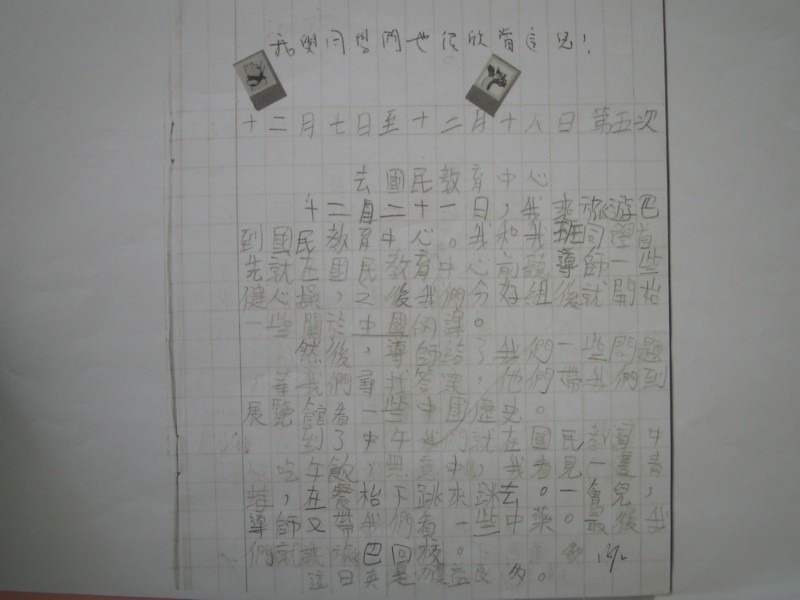 我與同學們也很欣賞這兒！
十二月七日至十二月十八日 第五次
去國民教育中心
十二月二十一日，我乘旅游巴
到國民教育中心。我和我班同學首
先就在國民教育中心前跟導師一些
健心操，之後我們分好組後就開始
一些關於中國的課。
然後，導師給了我們一些問題
，等我們尋找答案，他們帶我們到
展覽館看一些中國歷史。
到了中午我們就在國民教育中
心吃午飯，無意中，我看見一隻青
蛙，在餐枱下跳來跳去。一會兒，
導師又帶我們看一些中藥。最後我
們就乘旅巴回校。
這日真是獲益良多。